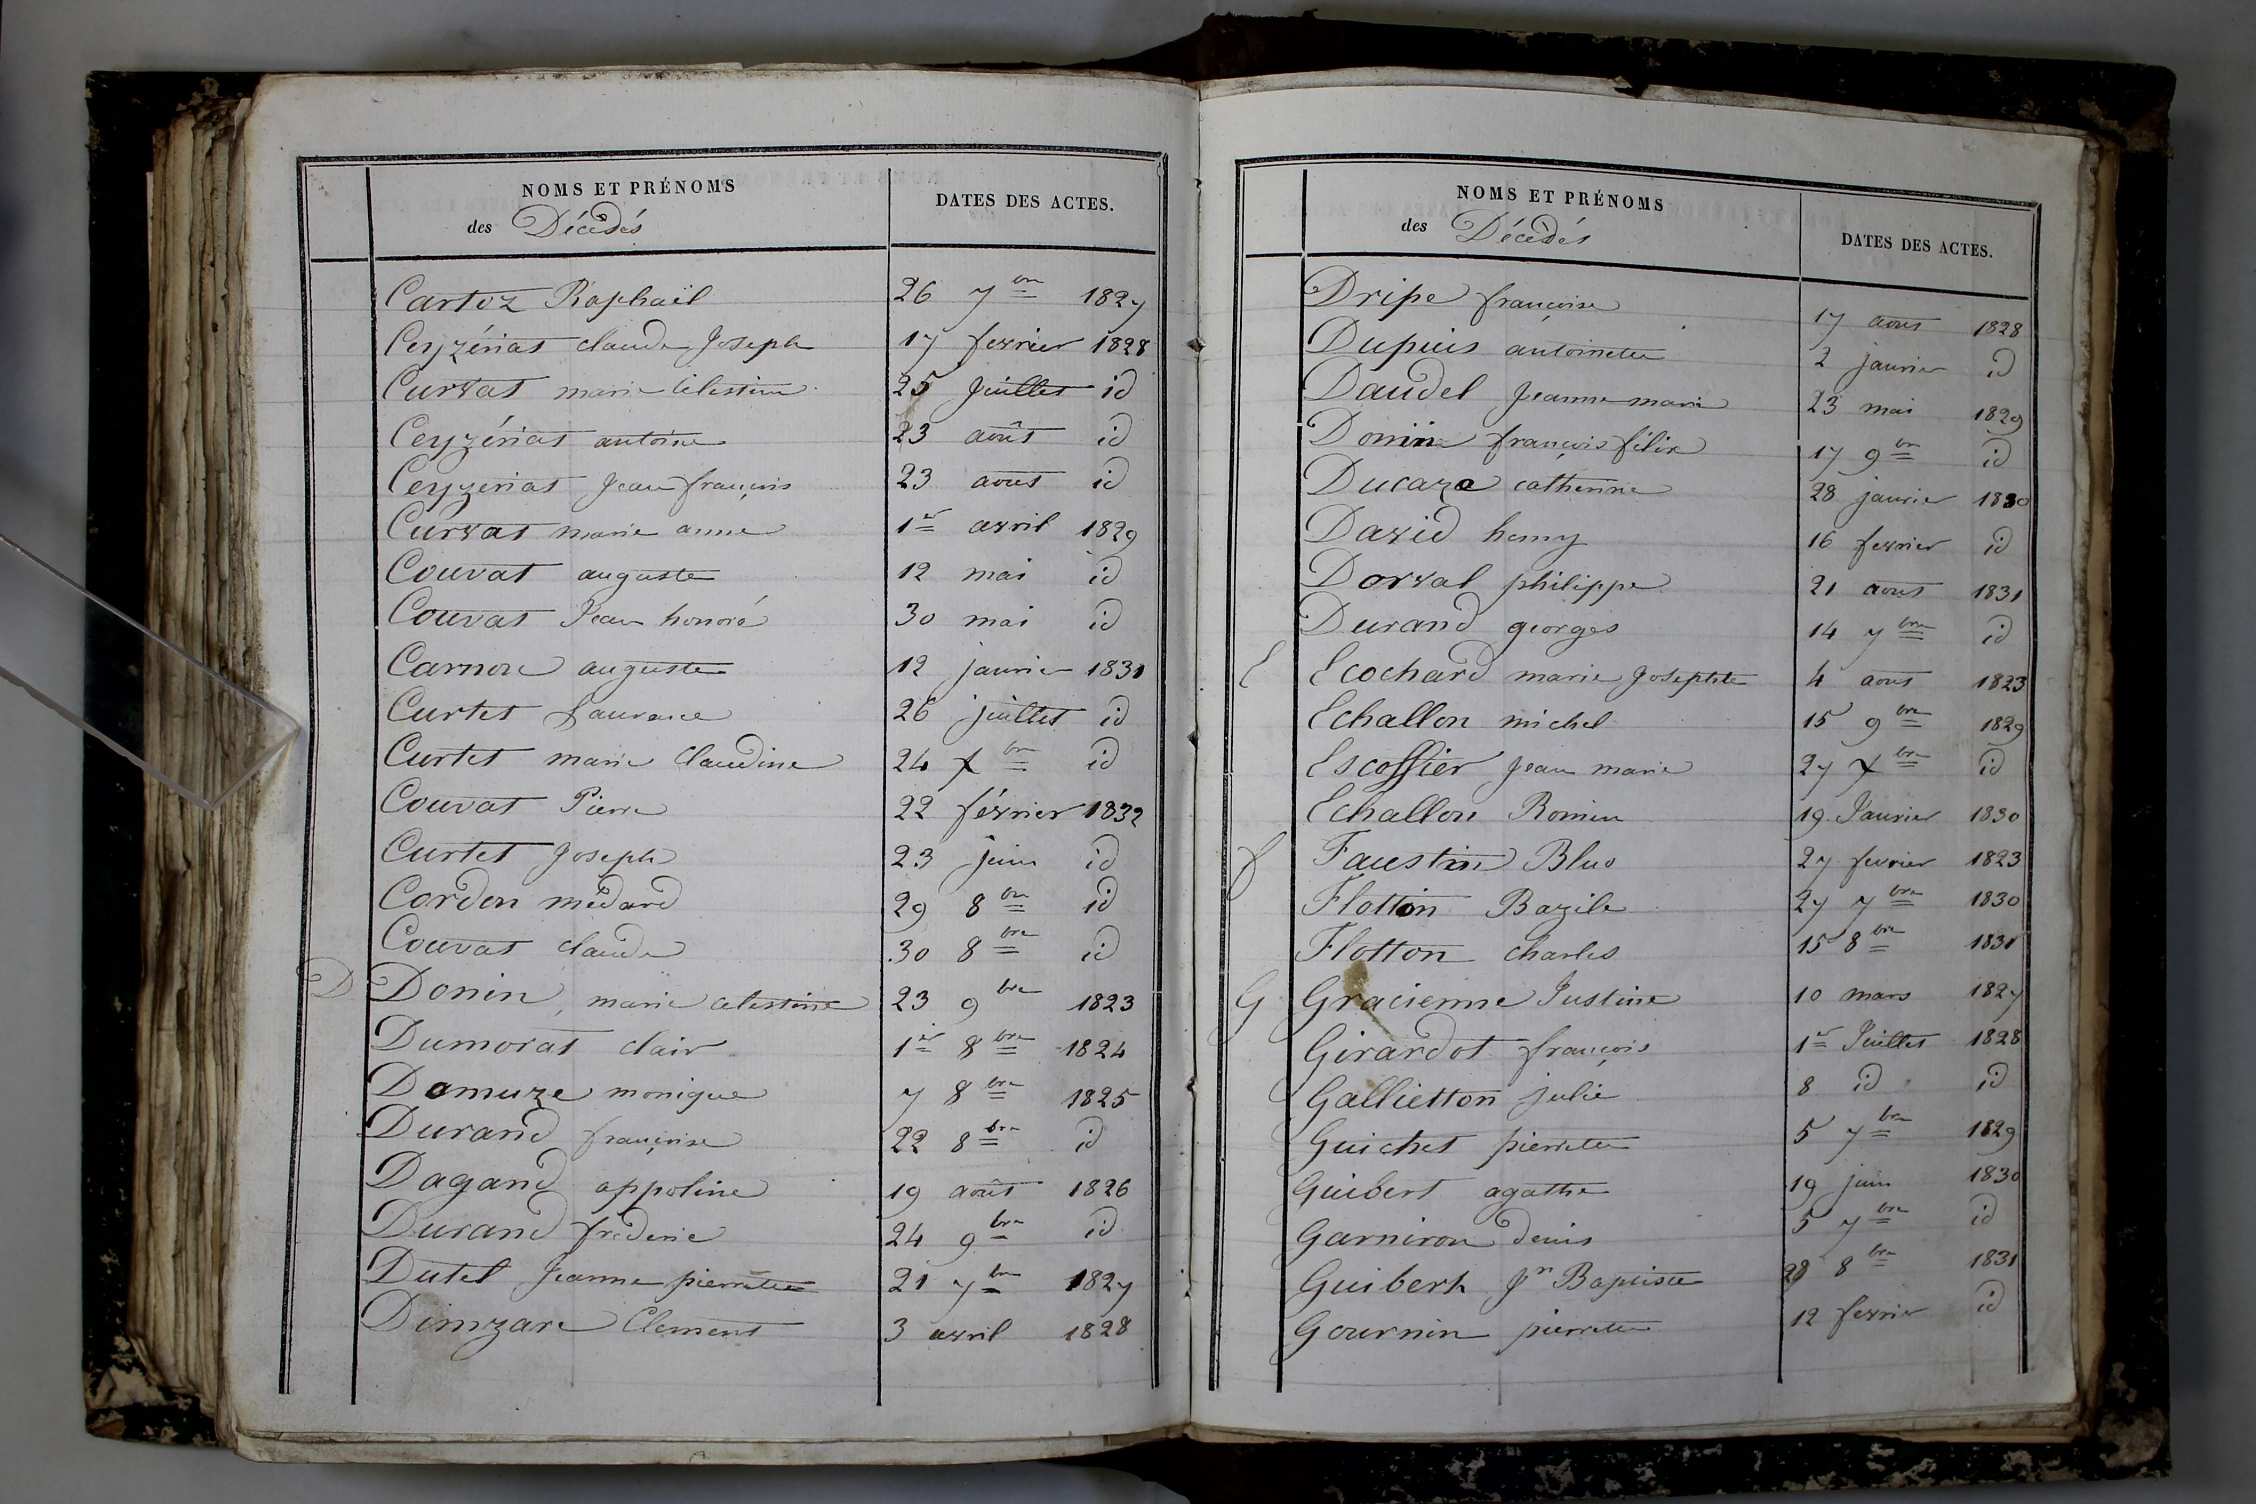 NOMS ET PRÉNOMS
des Décédés
DATES DES ACTES.
Cartoz Raphaël 26 7bre 1827
Ceyzériat claude Joseph 17 fevrier 1828
Curvat marie célestine 25 juillet id
Ceyzériat antoine 23 août id
Ceyzeriat Jean françois 23 aout id
Curvat marie anne 1er avril 1829
Couvat auguste 12 mai id
Couvat Jean honoré 30 mai id
Carnon auguste 12 janvier 1831
Curtet Laurence 26 juillet id
Curtet marie Claudine 24 Xbre id
Couvat Pierre 22 février 1832
Curtet Joseph 23 juin id
Cordon médard 29 8bre id
Couvat claude 30 8bre id
D Donin, marie celestine 23 9bre 1823
Dumorat clair 1er 8bre 1824
Damuze monique 7 8bre 1825
Durand françoise 22 8bre id
Dagand appoline 19 août 1826
Durand frederic 24 9bre id
Dutel Jeanne pierrette 21 7bre 1827
Dimzare Clement 3 avril 1828
NOMS ET PRÉNOMS
des Décédés
DATES DES ACTES.
Dripe françoise 17 aout 1828
Dupuis antoinette 2 janvier id
Daudel Jeanne marie 23 mai 1829
Donin françois félix 17 9bre id
Ducaze catherine 28 janvier 1830
David henry 16 fevrier id
Dorval philippe 21 aout 1831
Durand georges 14 7bre id
E Ecochard marie Josephte 4 aout 1823
Echallon michel 15 9bre 1829
Escoffier Jean marie 27 Xbre id
Echallon Romin 19 Janvier 1830
f Faustin Bluo 27 fevrier 1823
Flotton Bazile 27 7bre 1830
Flotton charles 15 8bre 1831
G Gracienne Justine 10 mars 1827
Girardot françois 1er Juillet 1828
Gallietton julie 8 id id
Guichet pierrette 5 7bre 1829
Guibert agathe 19 juin 1830
Garniron denis 5 7bre id
Guibert Jn Baptiste 28 8bre 1831
Gournin pierrette 12 fevrier id